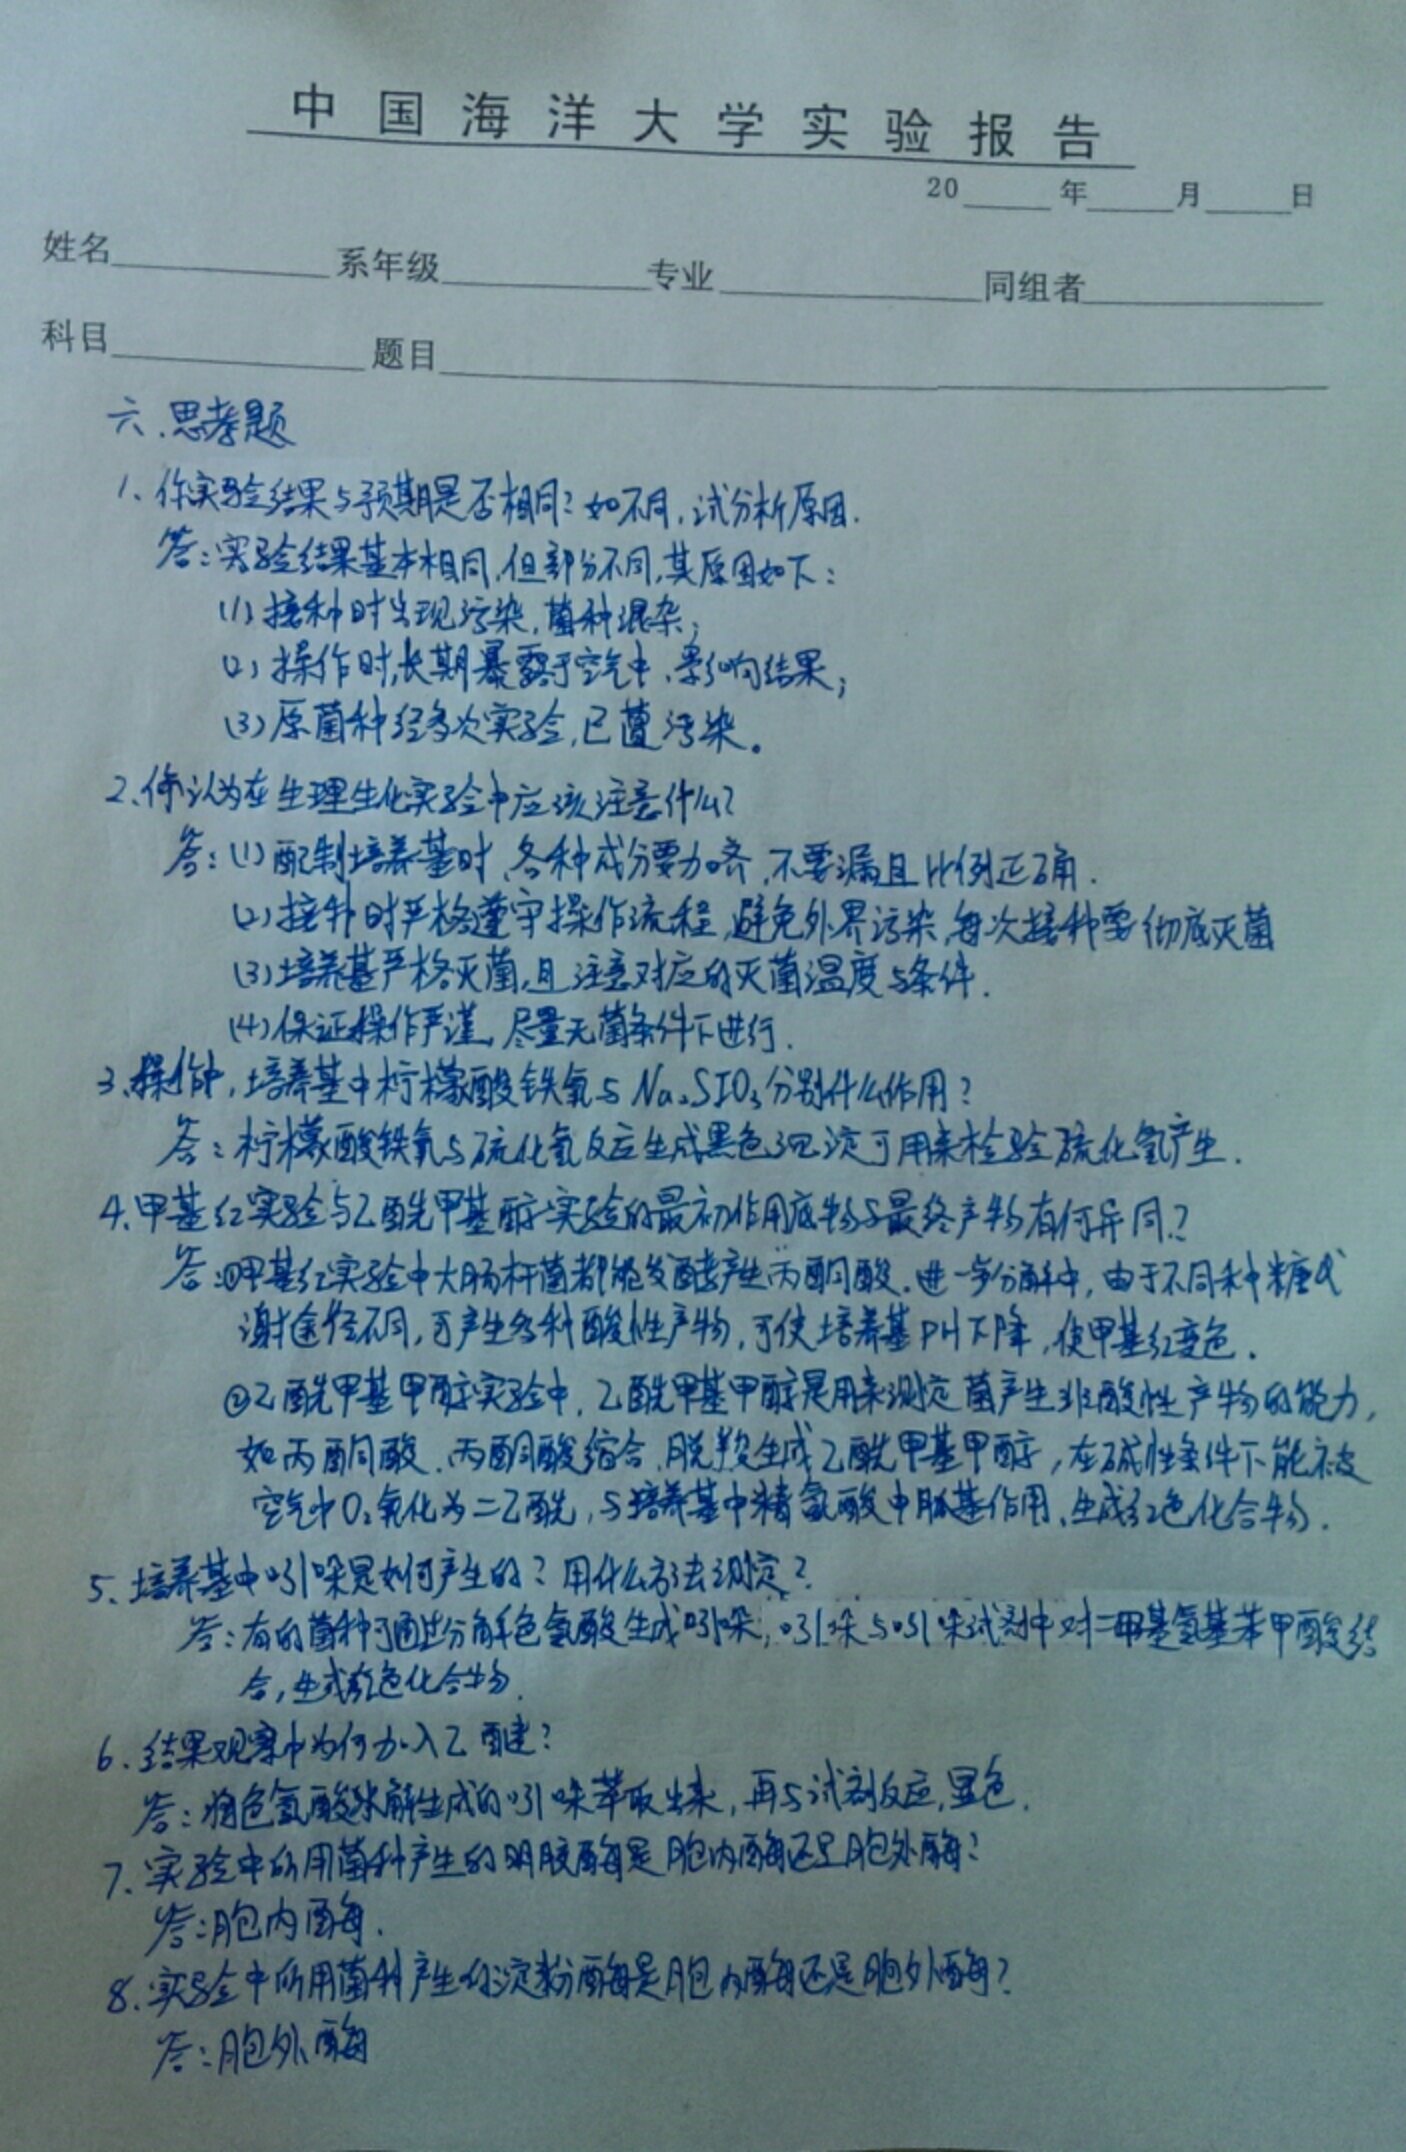 中国海洋大学实验报告
20____年____月____日
姓名____系年级____专业____同组者____
科目____题目____
六、思考题
1、你实验结果与预期是否相同？如不同，试分析原因.
答：实验结果基本相同，但部分不同，其原因如下：
(1) 接种时出现污染，菌种混杂；
(2) 操作时，长期暴露于空气中，影响结果；
(3) 原菌种经多次实验，已遭污染。
2、你认为在生理生化实验中应该注意什么？
答：(1) 配制培养基时，各种成分要加齐，不要漏且比例正确.
(2) 接种时严格遵守操作流程，避免外界污染，每次接种要彻底灭菌
(3) 培养基严格灭菌，且注意对应的灭菌温度与条件.
(4) 保证操作严谨，尽量无菌条件下进行.
3、操作中，培养基中柠檬酸铁氨与Na2SIO3分别什么作用？
答：柠檬酸铁氨与硫化氢反应生成黑色沉淀可用来检验硫化氢产生.
4、甲基红实验与乙酰甲基醇实验的最初作用底物与最终产物有何异同？
答：①甲基红实验中大肠杆菌都能发酵产生丙酮酸.进一步分解中，由于不同种糖代
谢途径不同，可产生各种酸性产物，可使培养基PH下降，使甲基红变色.
②乙酰甲基甲醇实验中，乙酰甲基甲醇是用来测定菌产生非酸性产物的能力，
如丙酮酸.丙酮酸缩合.脱羧生成乙酰甲基甲醇，在碱性条件下能被
空气中O2氧化为二乙酰，与培养基中精氨酸中胍基作用，生成红色化合物.
5、培养基中吲哚是如何产生的？用什么方法测定？
答：有的菌种可通过分解色氨酸生成吲哚，吲哚与吲哚试剂中对二甲基氨基苯甲酸结
合，生成红色化合物.
6、结果观察中为何加入乙醚？
答：将色氨酸水解生成的吲哚萃取出来，再与试剂反应，显色.
7、实验中所用菌种产生的明胶酶是胞内酶还是胞外酶？
答：胞内酶.
8、实验中所用菌种产生的淀粉酶是胞内酶还是胞外酶？
答：胞外酶